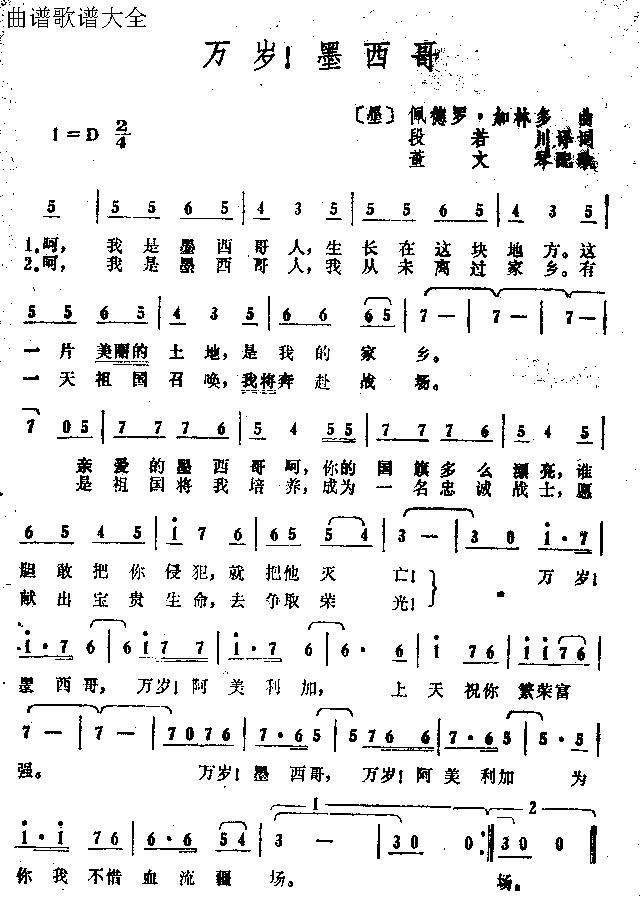 曲谱歌谱大全
万岁！墨西哥
〔墨〕佩德罗·加林多 曲
1=D 2/4
段若川译词
董文琴配歌
5 | 5 5 6 5 | 4 3 5 | 5 5 6 5 | 4 3 5 |
1.呵，我是墨西哥人，生长在这块地方。这
2.呵，我是墨西哥人，我从未离过家乡。有
5 5 6 5 | 4 3 5 | 6 6 6 | 6 5 | 7 - | 7 - | 7 - |
一片美丽的土地，是我的家乡。
一天祖国召唤，我将奔赴战场。
7 0 5 | 7 7 7 6 | 5 4 5 5 | 7 7 7 6 | 5 4 5 |
亲爱的墨西哥呵，你的国旗多么漂亮，谁
是祖国将我培养，成为一名忠诚战士，愿
6 5 4 5 | i 7 6 | 6 5 5 4 | 3 - | 3 0 i·7 |
胆敢把你侵犯，就把他灭亡！ 万岁！
献出宝贵生命，去争取荣光！
i·7 6 | 6 i 7 7 | i·7 6 | 6· 6 | i i 7 6 |
墨西哥，万岁！阿美利加，上天祝你繁荣富
7 - | 7 - | 7 0 7 6 | 7·6 5 | 5 7 6 6 | 7·6 5 | 5· 5 |
强。 万岁！墨西哥，万岁！阿美利加为
i·i 7 6 | 6·6 5 4 | 3 - | 3 0 0 :| 3 0 0 ‖
你我不惜血流疆场。 场。